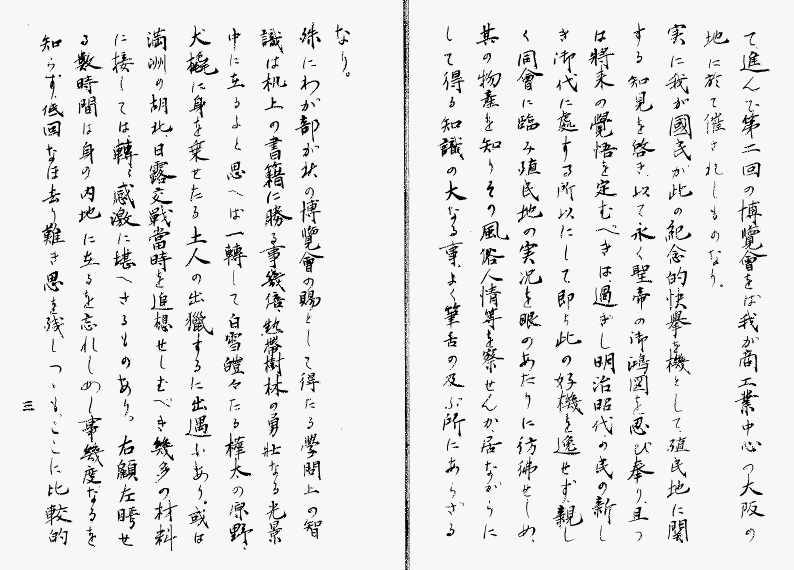 て進んで第二回の博覧會をば我が商工業中心の大阪の
地に於て催されしものなり。
実に我が國民が此の紀念的快擧を機として殖民地に関
する知見を啓き、以て永く聖帝の御鴻図を忍び奉り、且つ
は将来の覺悟を定むべきは過ぎし明治昭代の民の新し
き御代に處する所以にして、即ち此の好機を逸せず、親し
く同會に臨み殖民地の実況を眼のあたりに彷彿せしめ、
其の物産を知りその風俗人情等を察せんか、居ながらに
して得る知識の大なる事、よく筆舌の及ぶ所にあらざる
なり。
殊にわが部が此の博覧會の賜として得たる學問上の智
識は机上の書籍に勝る事幾倍、熱帯樹林の勇壮なる光景
中に立るよと思へば一轉して白雪皚々たる樺太の原野、
犬橇に身を乗せたる土人の出獵するに出遇ふあり、或は
満洲の胡北、日露交戰當時を追想せしむべき幾多の材料
に接しては轉々感激に堪へさるものあり。右顧左眄せ
る數時間は身の内地に立るを忘れしめし事幾度なるを
知らず、低回なほ去り難き思を残しつゝも、こゝに比較的
三